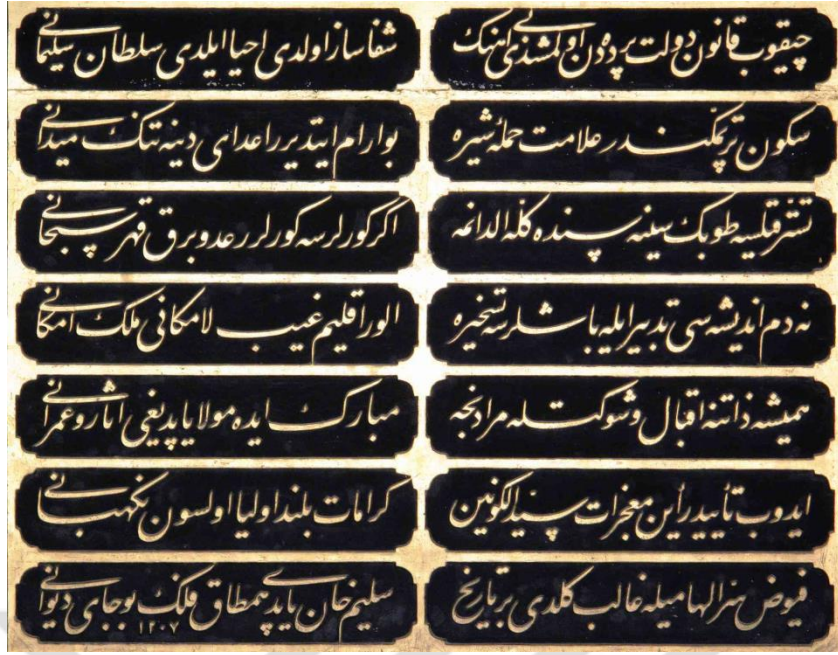 چیقوب قانون دولت پرده دن اولمشدی بی اهنك
شفاساز اولدی احیا ایلدی سلطان سلیمانی
سکون پر تمکندر علامت حملهٔ شیره
بو ارام ایتدیرر اعدای دینه تنك میدانی
تستر قیلسه طوبك سینه سنده کله الدانمه
اکر کورلرسه کورلر رعد و برق قهر سبحانی
نه دم اندیشه سی تدبیر ایله باشلرسه تسخیره
الور اقلیم غیب لامکانی ملك امکانی
همیشه ذاتنه اقبال و شوکتله مرادنجه
مبارك ایده مولا یاپدیغی اثار و عمرانی
ایدوب تأیید رأین معجزات سید الکونین
کرامات بلند اولیا اولسون نکهبانی
فیوض سر الهامیله غالب کلدی بر تاریخ
سلیم خان یاپدی همطاق فلك بو جای دیوانی
١٢٠٧